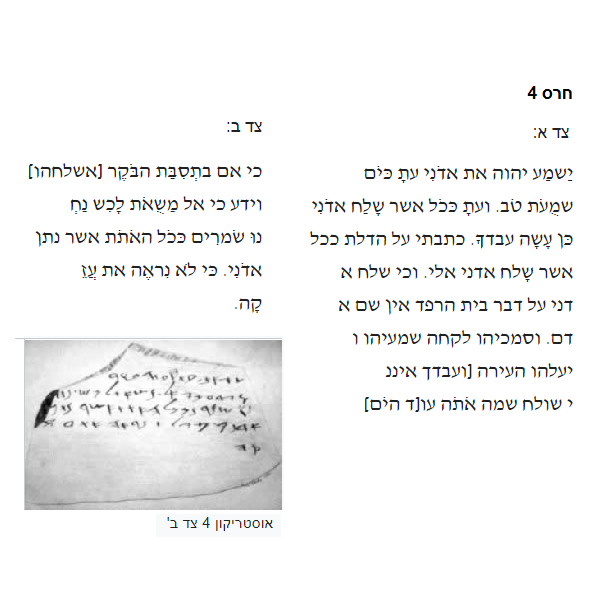 חרס 4
צד א:
יַשמַע יהוה את אדֹנִי עתָ כַּיֹם
שמֻעֹת טֹב. ועתָ כּכֹל אשר שָלַח אדֹנִי
כּןִ עָשָה עבדךָ. כתבתי על הדלת ככל
אשר שָלח אדני אלי. וכי שלח א
דני על דבר בית הרפד אין שם א
דם. וסמכיהו לקחה שמעיהו ו
יעלהו העירה [ועבדך איננ
י שולח שמה אֹתֹה עו[ד היֹם]
צד ב:
כי אם בתְסִבַּת הבֹּקֶר [אשלחהו]
וידע כי אל מַשֻׂאֹת לָכִש נַחְ
נוּ שֹמרִים כּכֹל האֹתֹת אשר נתן
אדֹנִי. כּי לֹא נִראֶה את עֲזֵ
קָה.
אוסטריקון 4 צד ב'